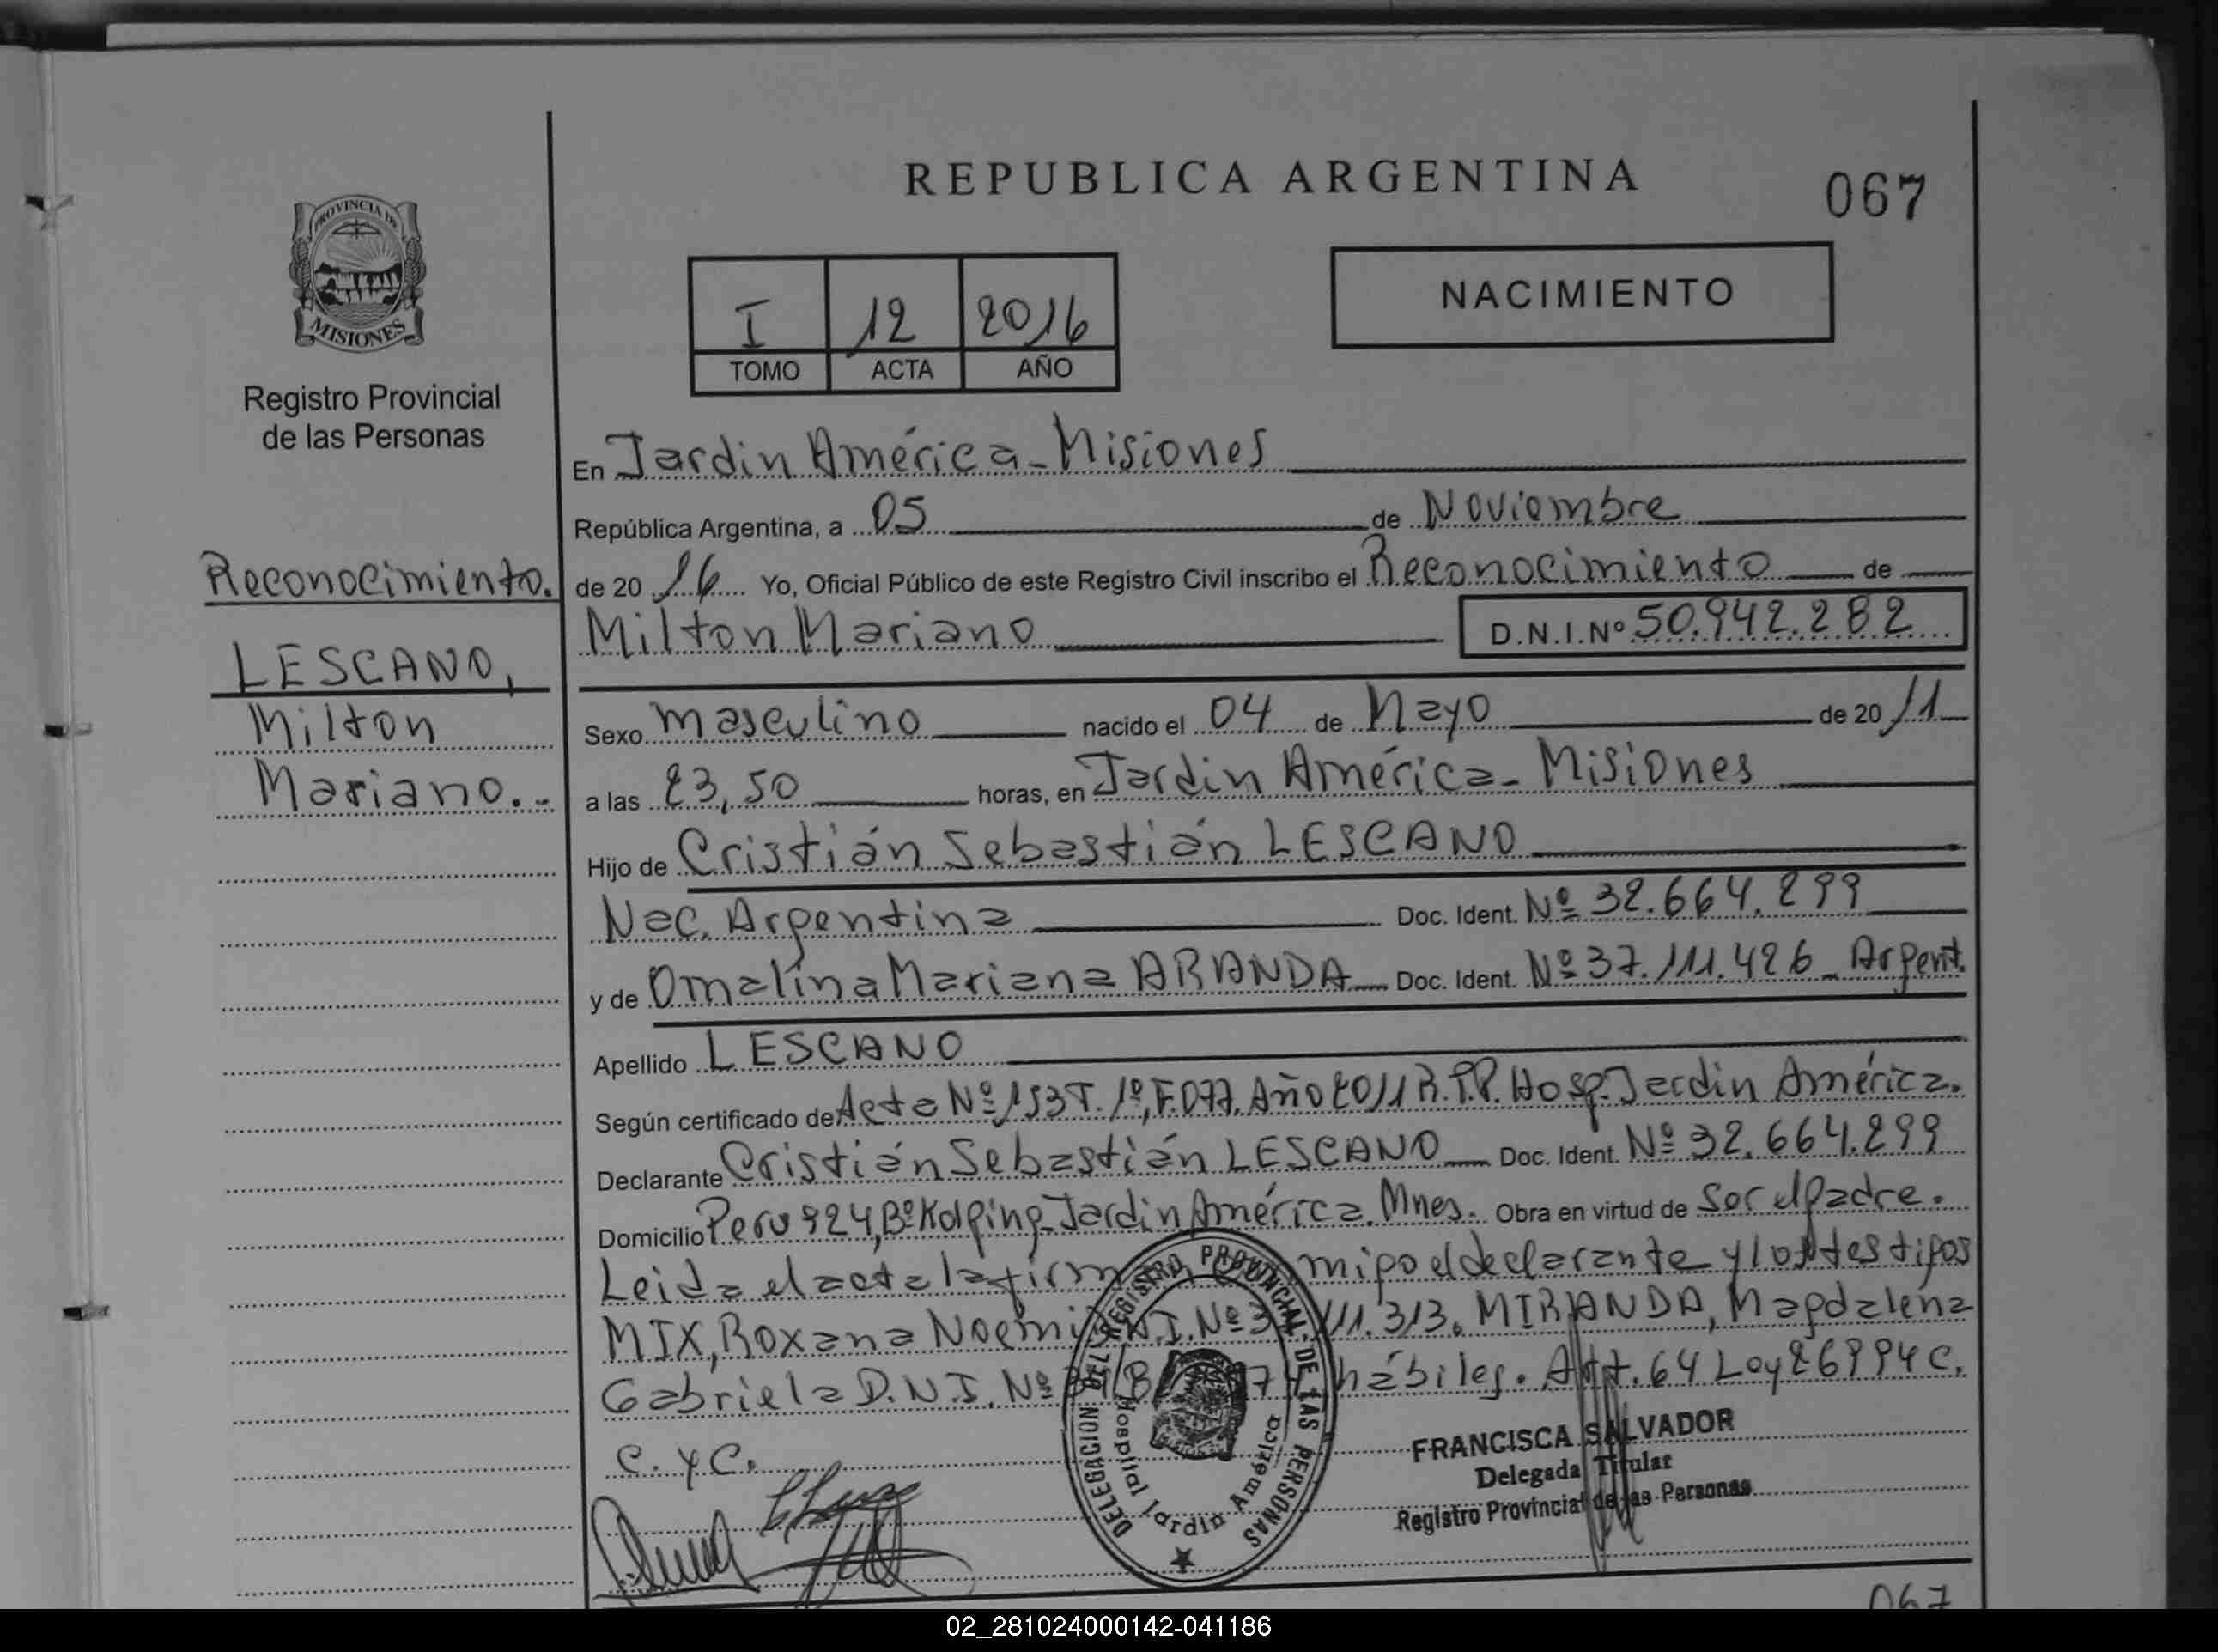 REPUBLICA ARGENTINA
067
PROVINCIA DE
MISIONES
Registro Provincial
de las Personas
I 12 2016
TOMO ACTA AÑO
NACIMIENTO
Reconocimiento.
LESCANO,
Milton
Mariano.-
En Jardin América-Misiones
República Argentina, a 05 de Noviembre
de 20 16 Yo, Oficial Público de este Registro Civil inscribo el Reconocimiento de
Milton Mariano D.N.I.Nº 50.942.282
Sexo masculino nacido el 04 de Mayo de 20 11
a las 23,50 horas, en Jardin América-Misiones
Hijo de Cristián Sebastián LESCANO
Nac. Argentina Doc. Ident. Nº 32.664.299
y de Omalina Mariana ARANDA Doc. Ident. Nº 37.111.426 - Argent.
Apellido LESCANO
Según certificado de Acta Nº 153 T. 1º, F. 077. Año 2011 R.P.P. Hosp. Jardin América.
Declarante Cristián Sebastián LESCANO Doc. Ident. Nº 32.664.299
Domicilio Peru 924, Bº Kolping-Jardin América. Mnes. Obra en virtud de Ser el padre.
Leida el acta la firm migo el declarante y los testigos
MIX, Roxana Noemi Nº 11.313. MIRANDA, Magdalena
Gabriela D.N.I. Nº hábiles. Art. 64 Ley 26994 C.
C. y C.
DELEGACION DEL REGISTRO PROVINCIAL DE LAS PERSONAS
Hospital Jardin América
FRANCISCA SALVADOR
Delegada Titular
Registro Provincial de las Personas
067
02_281024000142-041186